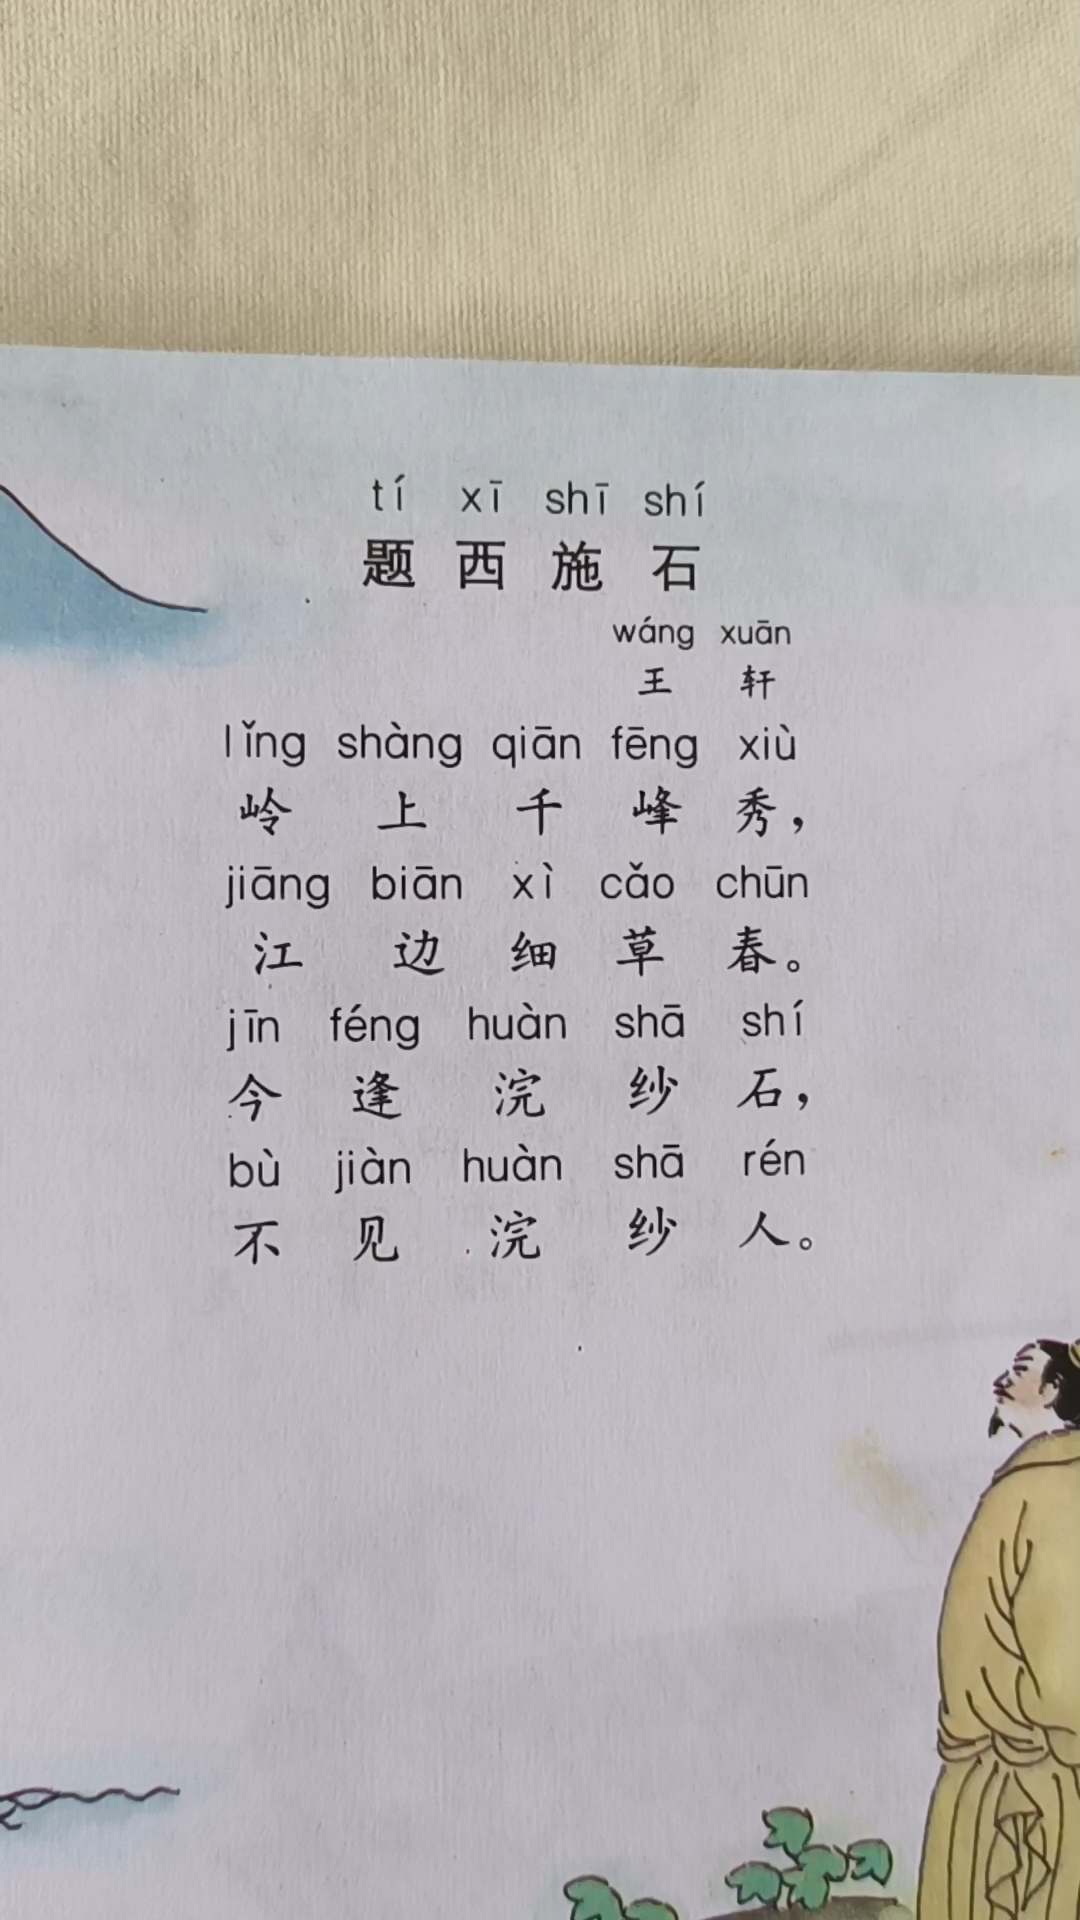 tí xī shī shí
题西施石
wáng xuān
王轩
lǐng shàng qiān fēng xiù
岭上千峰秀，
jiāng biān xì cǎo chūn
江边细草春。
jīn féng huàn shā shí
今逢浣纱石，
bù jiàn huàn shā rén
不见浣纱人。